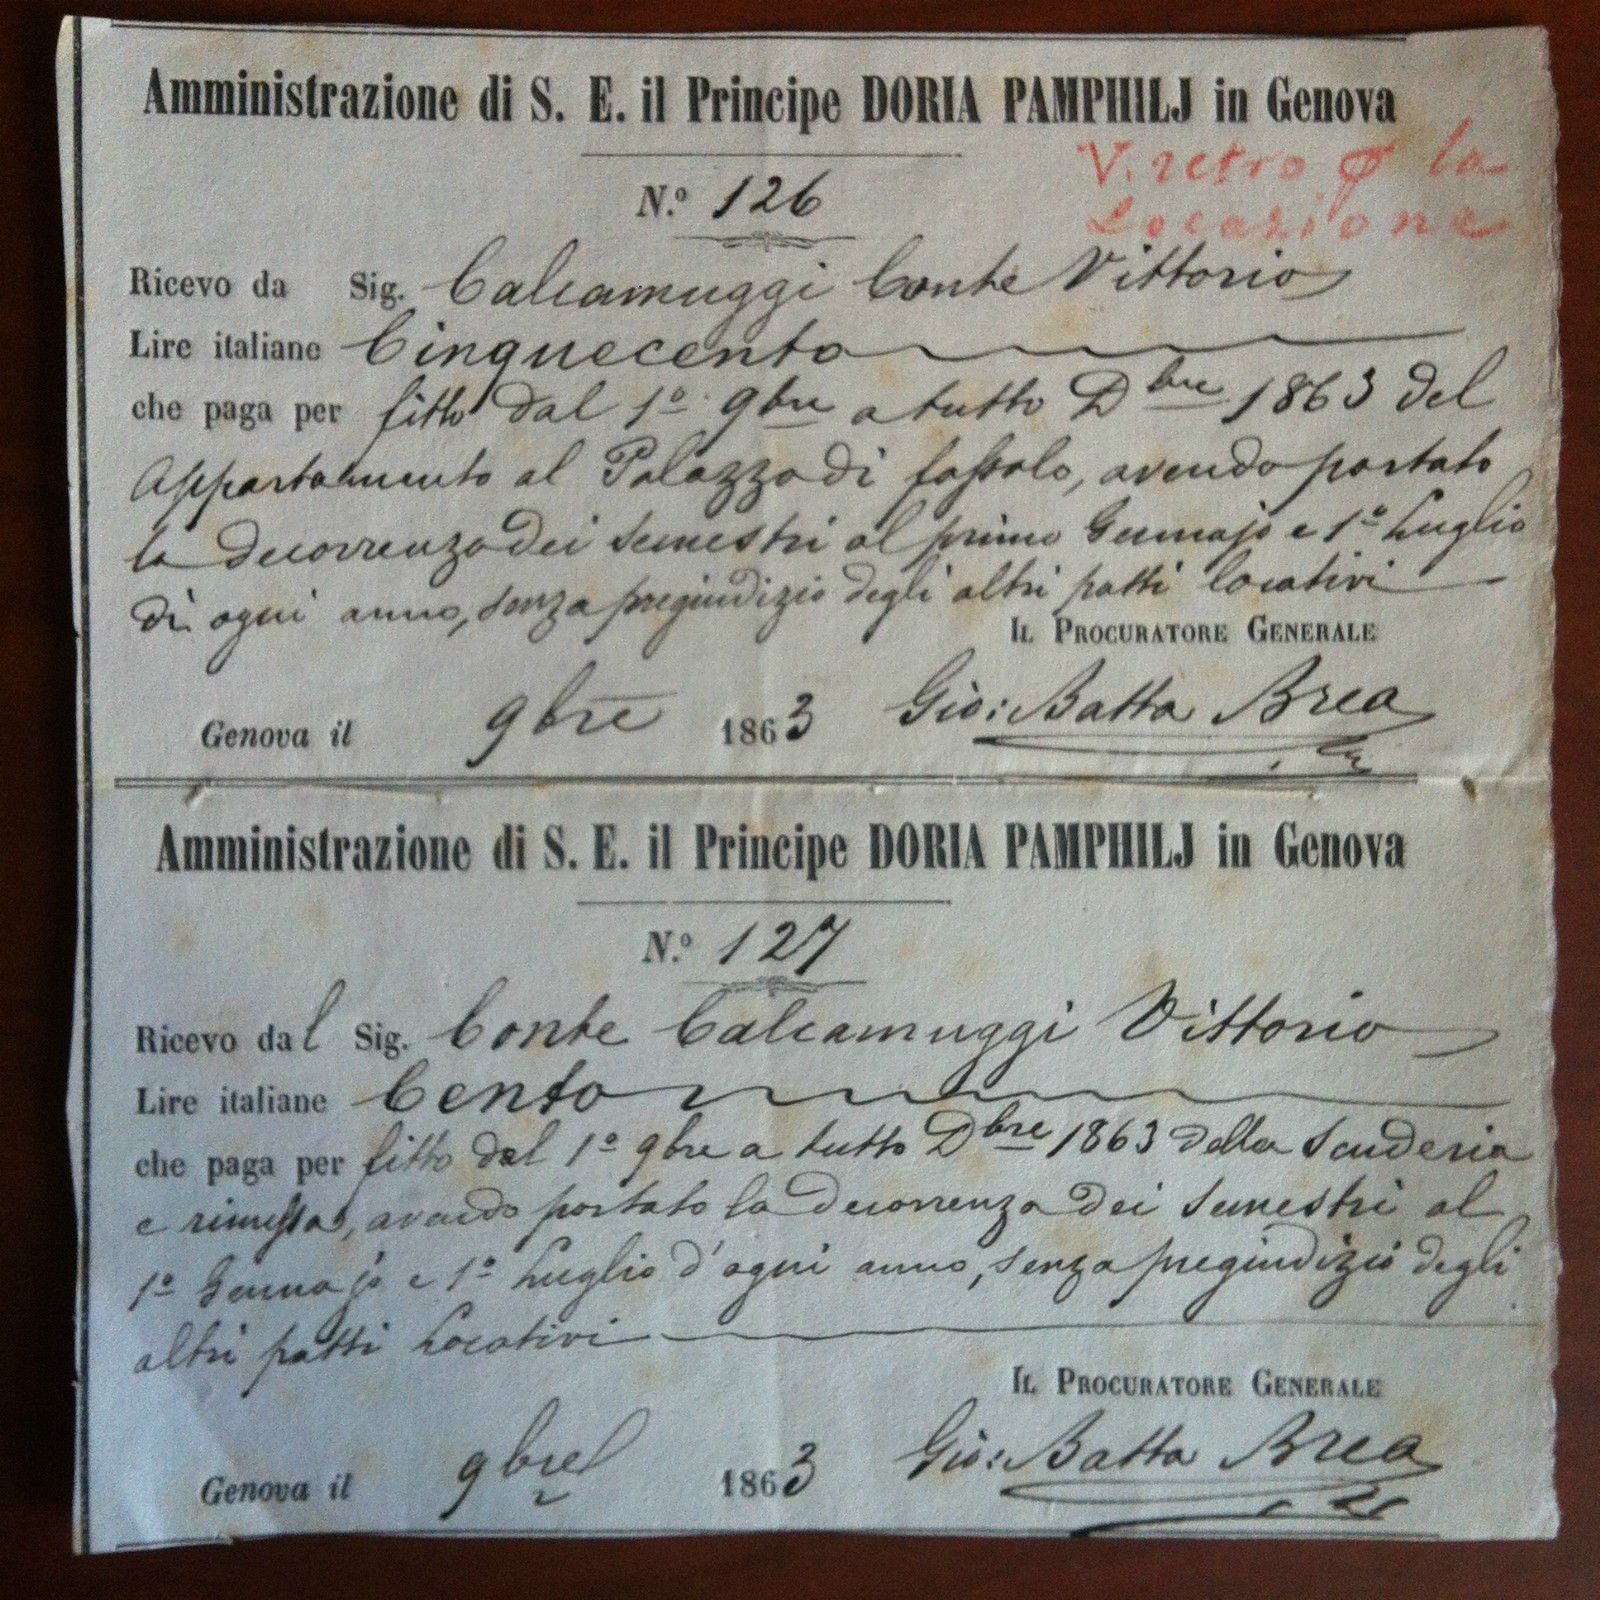 Amministrazione di S. E. il Principe DORIA PAMPHILJ in Genova
V. retro la
Locazione
N.º 126
Ricevo da Sig. Calcamuggi Conte Vittorio
Lire italiane Cinquecento
che paga per fitto dal 1º 9bre a tutto Dbre 1863 del
Appartamento al Palazzo di fassolo, avendo portato
la decorrenza dei semestri al primo Gennajo e 1º Luglio
di ogni anno, senza pregiudizio degli altri patti locativi
IL PROCURATORE GENERALE
Genova il 9bre 1863 Gio: Batta Brea
Amministrazione di S. E. il Principe DORIA PAMPHILJ in Genova
N.º 127
Ricevo dal Sig. Conte Calcamuggi Vittorio
Lire italiane Cento
che paga per fitto dal 1º 9bre a tutto Dbre 1863 della Scuderia
e rimessa, avendo portato la decorrenza dei semestri al
1º Gennajo e 1º Luglio d'ogni anno, senza pregiudizio degli
altri patti Locativi
IL PROCURATORE GENERALE
Genova il 9bre 1863 Gio: Batta Brea